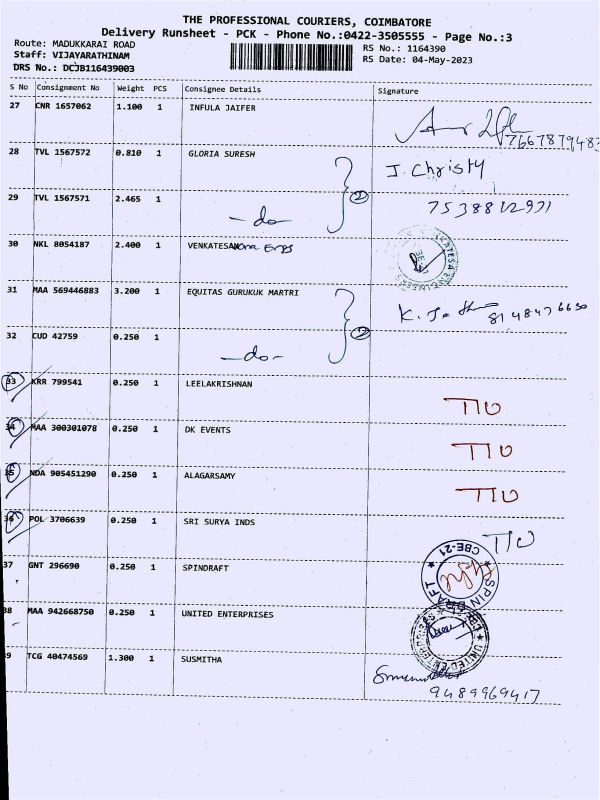 THE PROFESSIONAL COURIERS, COIMBATORE
Delivery Runsheet - PCK - Phone No.:0422-3505555 - Page No.:3
Route: MADUKKARAI ROAD RS No.: 1164390
Staff: VIJAYARATHINAM RS Date: 04-May-2023
DRS No.: DCJB116439003
S No Consignment No Weight PCS Consignee Details Signature
27 CNR 1657062 1.100 1 INFULA JAIFER
28 TVL 1567572 0.810 1 GLORIA SURESH J. Christy
29 TVL 1567571 2.465 1 -do- 2 7538812931
30 NKL 8054187 2.400 1 VENKATESA
31 MAA 569446883 3.200 1 EQUITAS GURUKUK MARTRI
32 CUD 42759 0.250 1 -do-
33 KRR 799541 0.250 1 LEELAKRISHNAN TIU
34 MAA 300301078 0.250 1 DK EVENTS TIU
35 NDA 905451290 0.250 1 ALAGARSAMY TIU
36 POL 3706639 0.250 1 SRI SURYA INDS TIU
37 GNT 296690 0.250 1 SPINDRAFT CBE-21 SPIN DRAFT
38 MAA 942668750 0.250 1 UNITED ENTERPRISES UNITED ENTERPRISES
39 TCG 40474569 1.300 1 SUSMITHA
9489969417